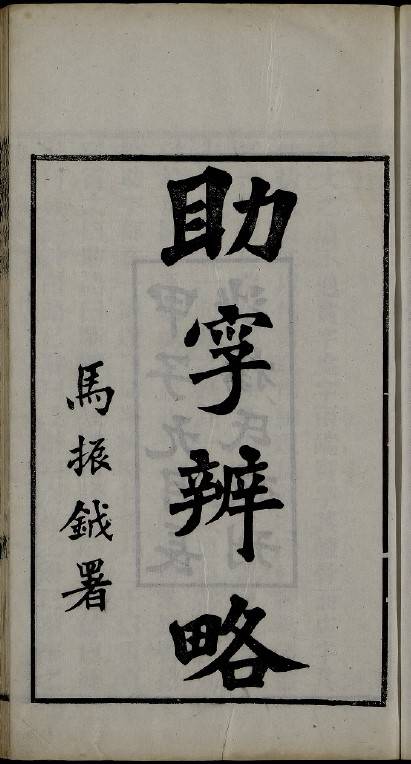 助字辨略
馬振鉞署